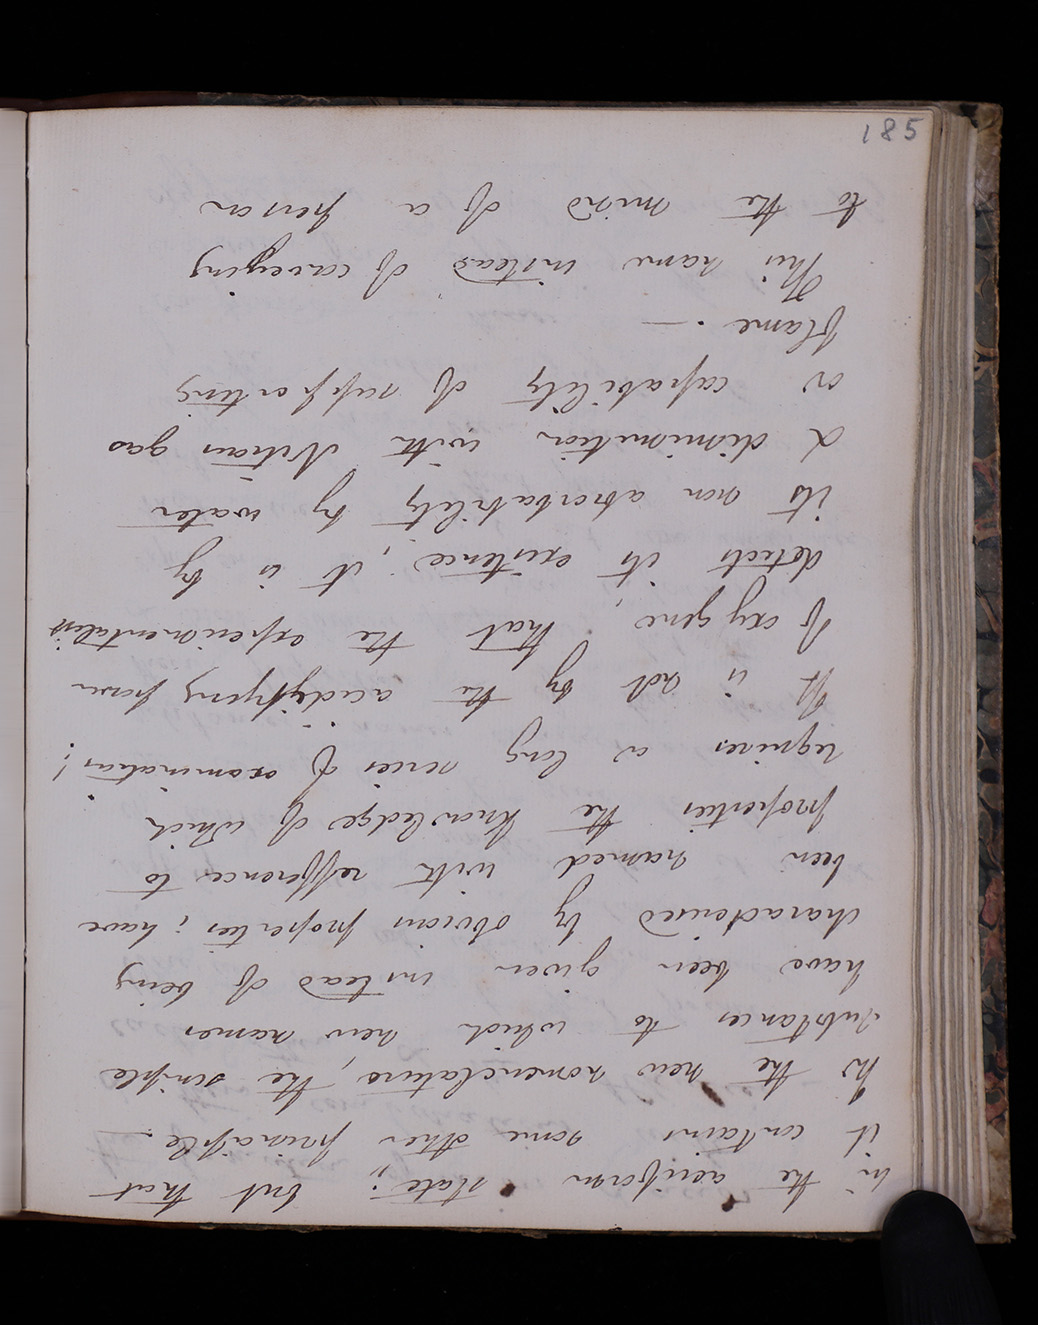 185
in the aeriform state; but that
it contains some other principle –
In the new nomenclature, the simple
substances to which new names
have been given instead of being
characterised by obvious properties; have
been named with refference to
properties the knowledge of which
requires a long series of examination!
It is not by the acidifying power
of oxygene, that the experimentalist
detects its existence, it is by
its non absorbability by water
& diminution with Nitrous gas
or capability of supporting
flame. –
This name instead of conveying
to the mind of a person